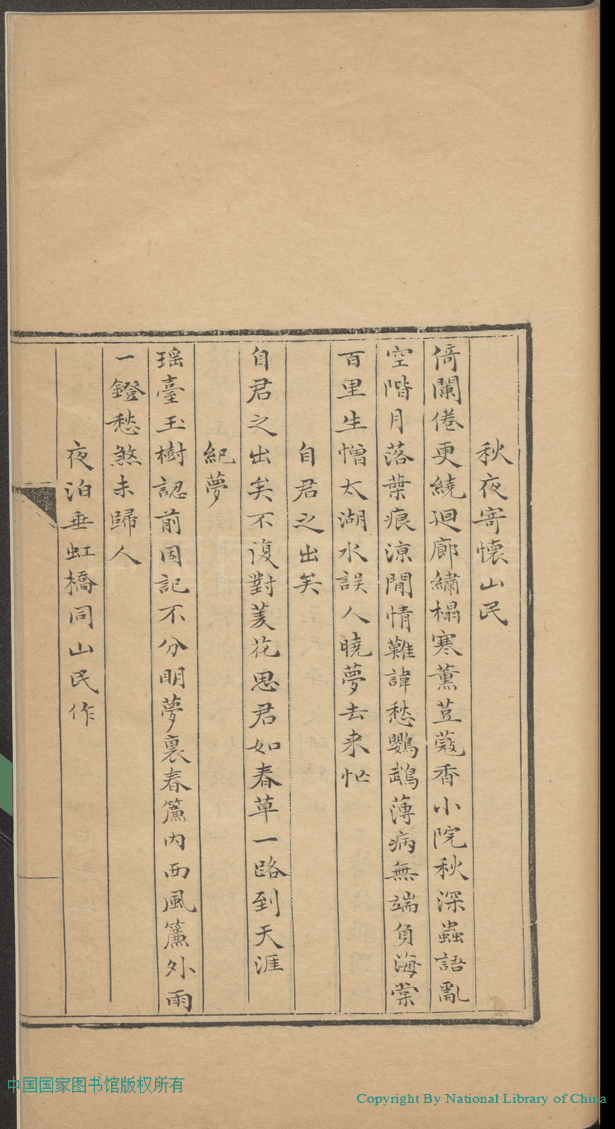 秋夜寄懷山民
倚闌倦更繞迴廊繡榻寒薰荳蔻香小院秋深蟲語亂
空階月落葉痕涼閒情難諱愁鸚鵡薄病無端負海棠
百里生憎太湖水誤人曉夢去來忙
自君之出矣
自君之出矣不復對菱花思君如春草一路到天涯
紀夢
瑶臺玉樹認前因記不分明夢裏春簾內西風簾外雨
一鐙愁煞未歸人
夜泊垂虹橋同山民作
中国国家图书馆版权所有
Copyright By National Library of China